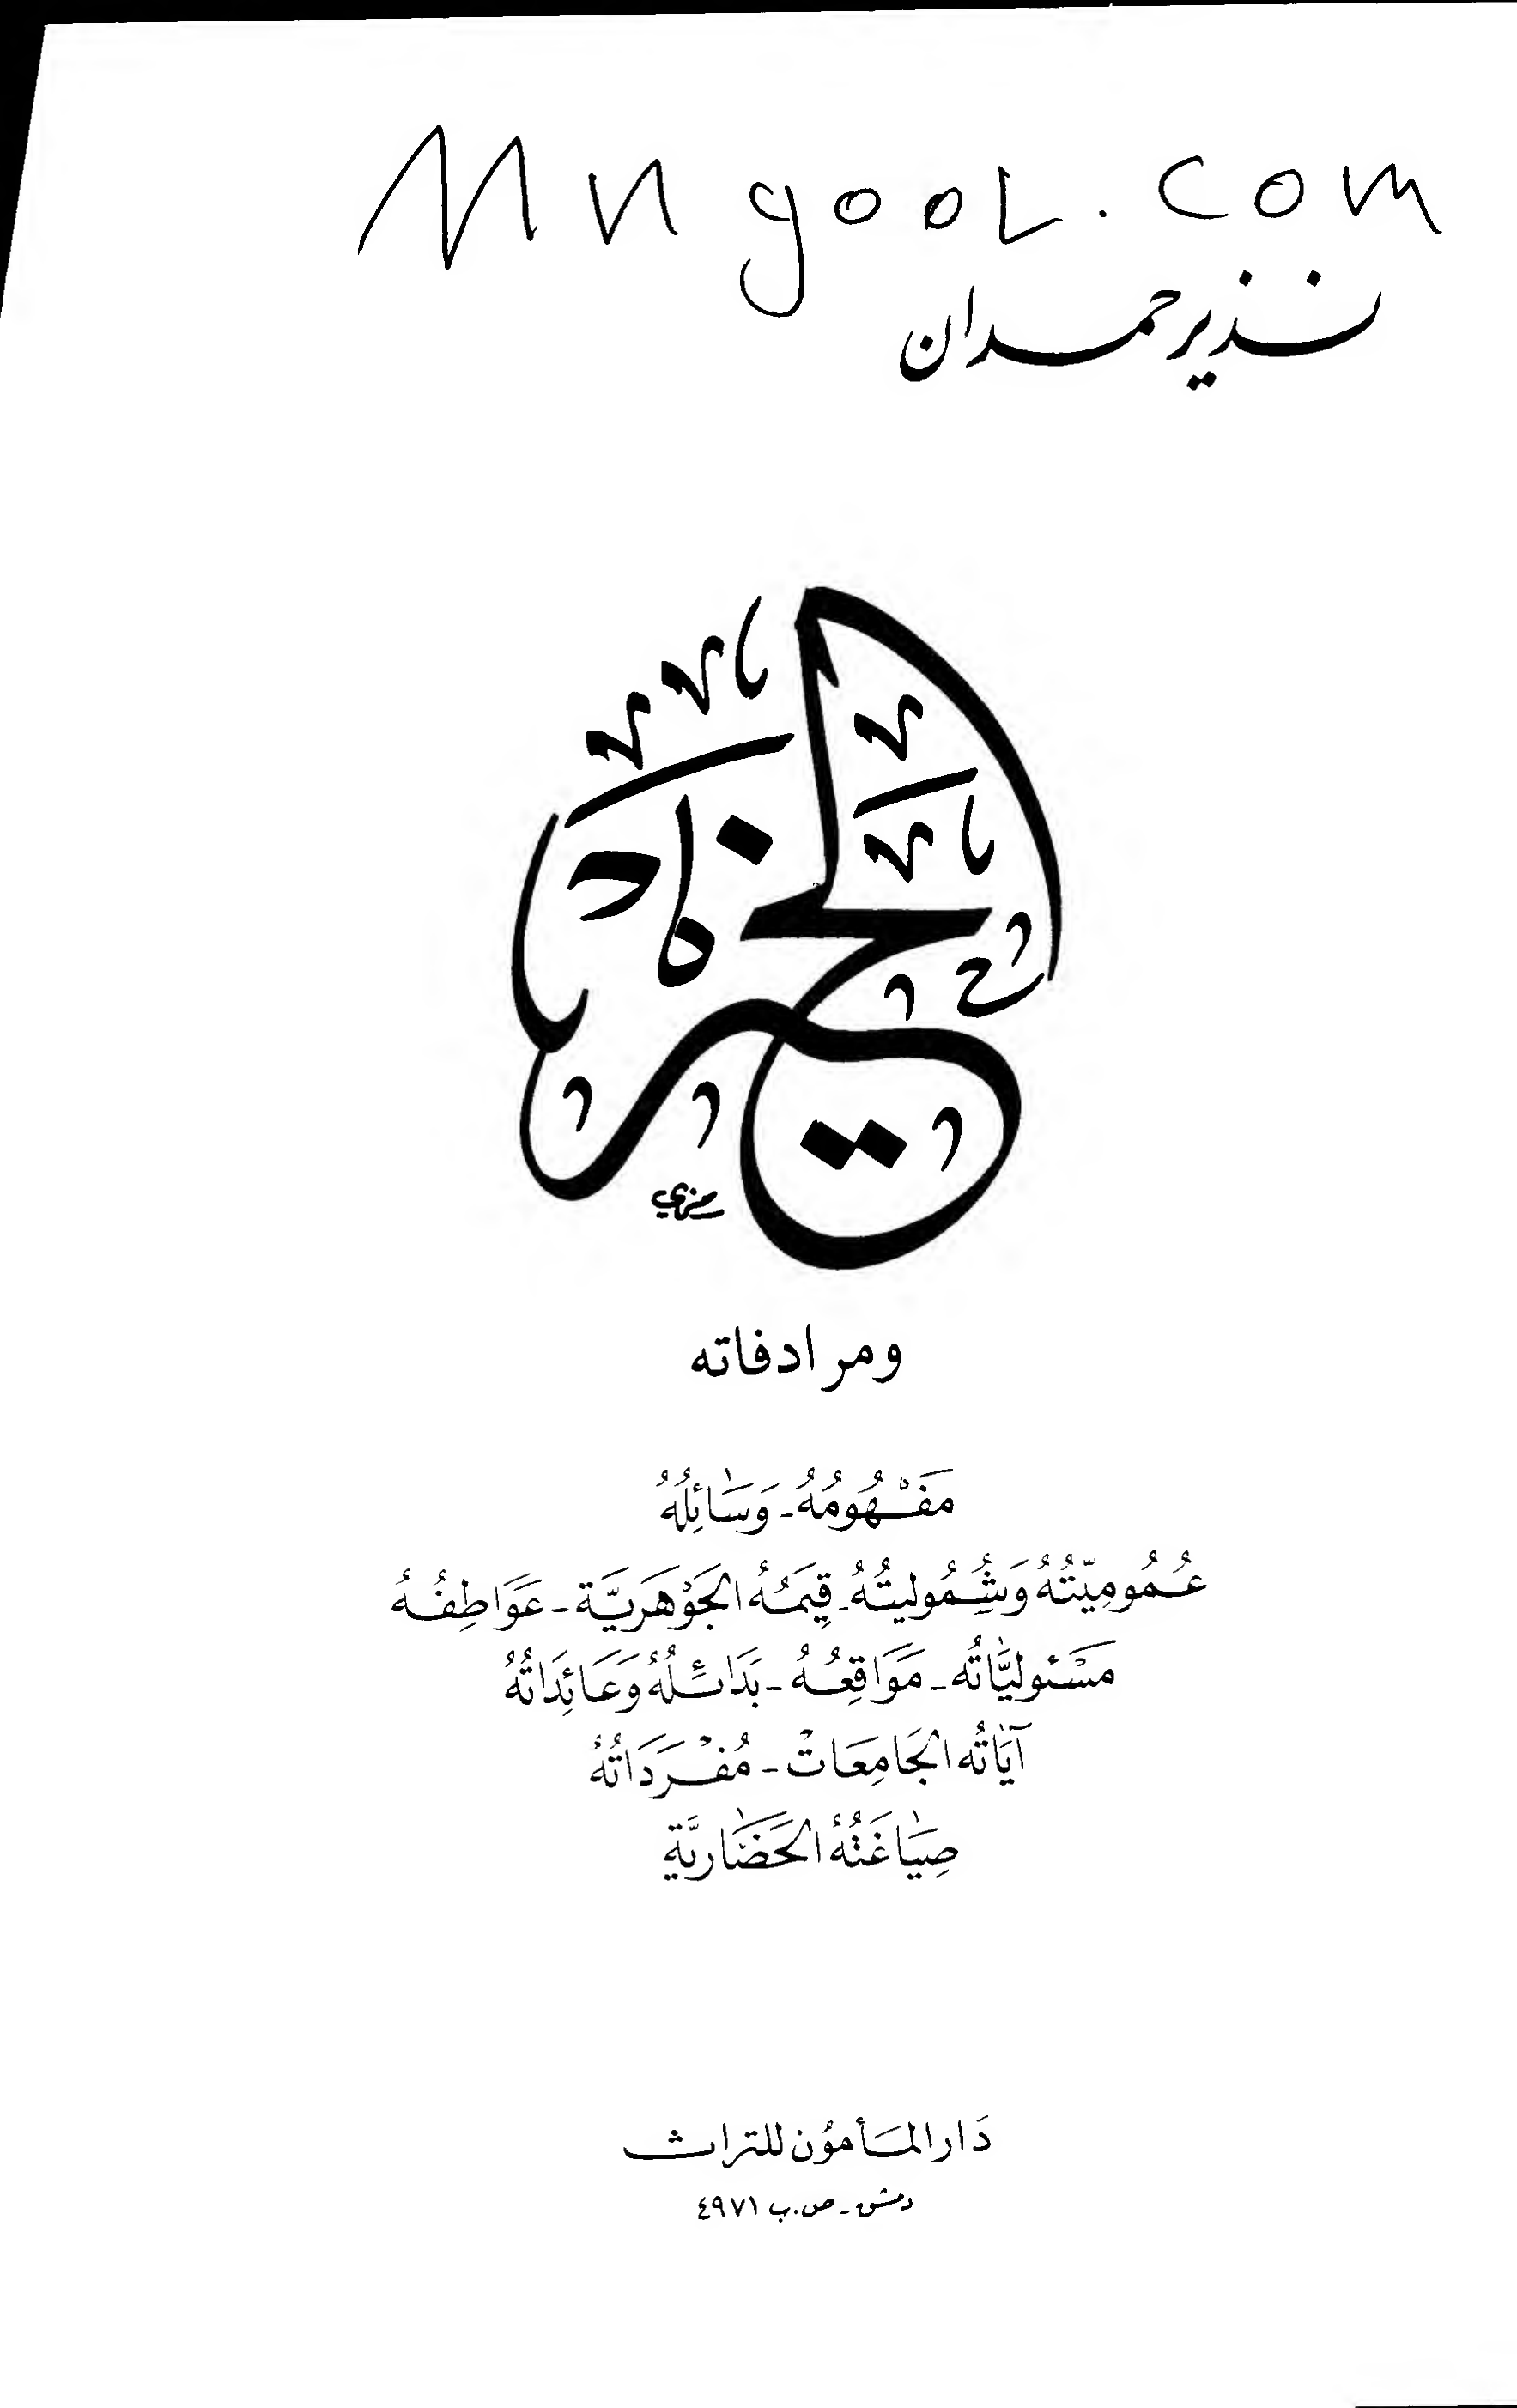 Mngool.com
نذير حمدان
الخير
ومرادفاته
مَفْهُومُهُ - وَسَائِلُهُ
عُمُومِيّتُهُ وَشُمُوليتُهُ - قِيَمُهُ الجَوْهَريَّة - عَوَاطِفُهُ
مَسْئوليَّاتُه - مَوَاقِعُهُ - بَدَائلُهُ وَعَائِدَاتُهُ
آيَاتُه الجَامِعَاتْ - مُفْرَدَاتُهُ
صِيَاغَتُهُ الحَضَاريَّة
دَار المَأمُون للتراث
دمشق - ص.ب ٤٩٧١